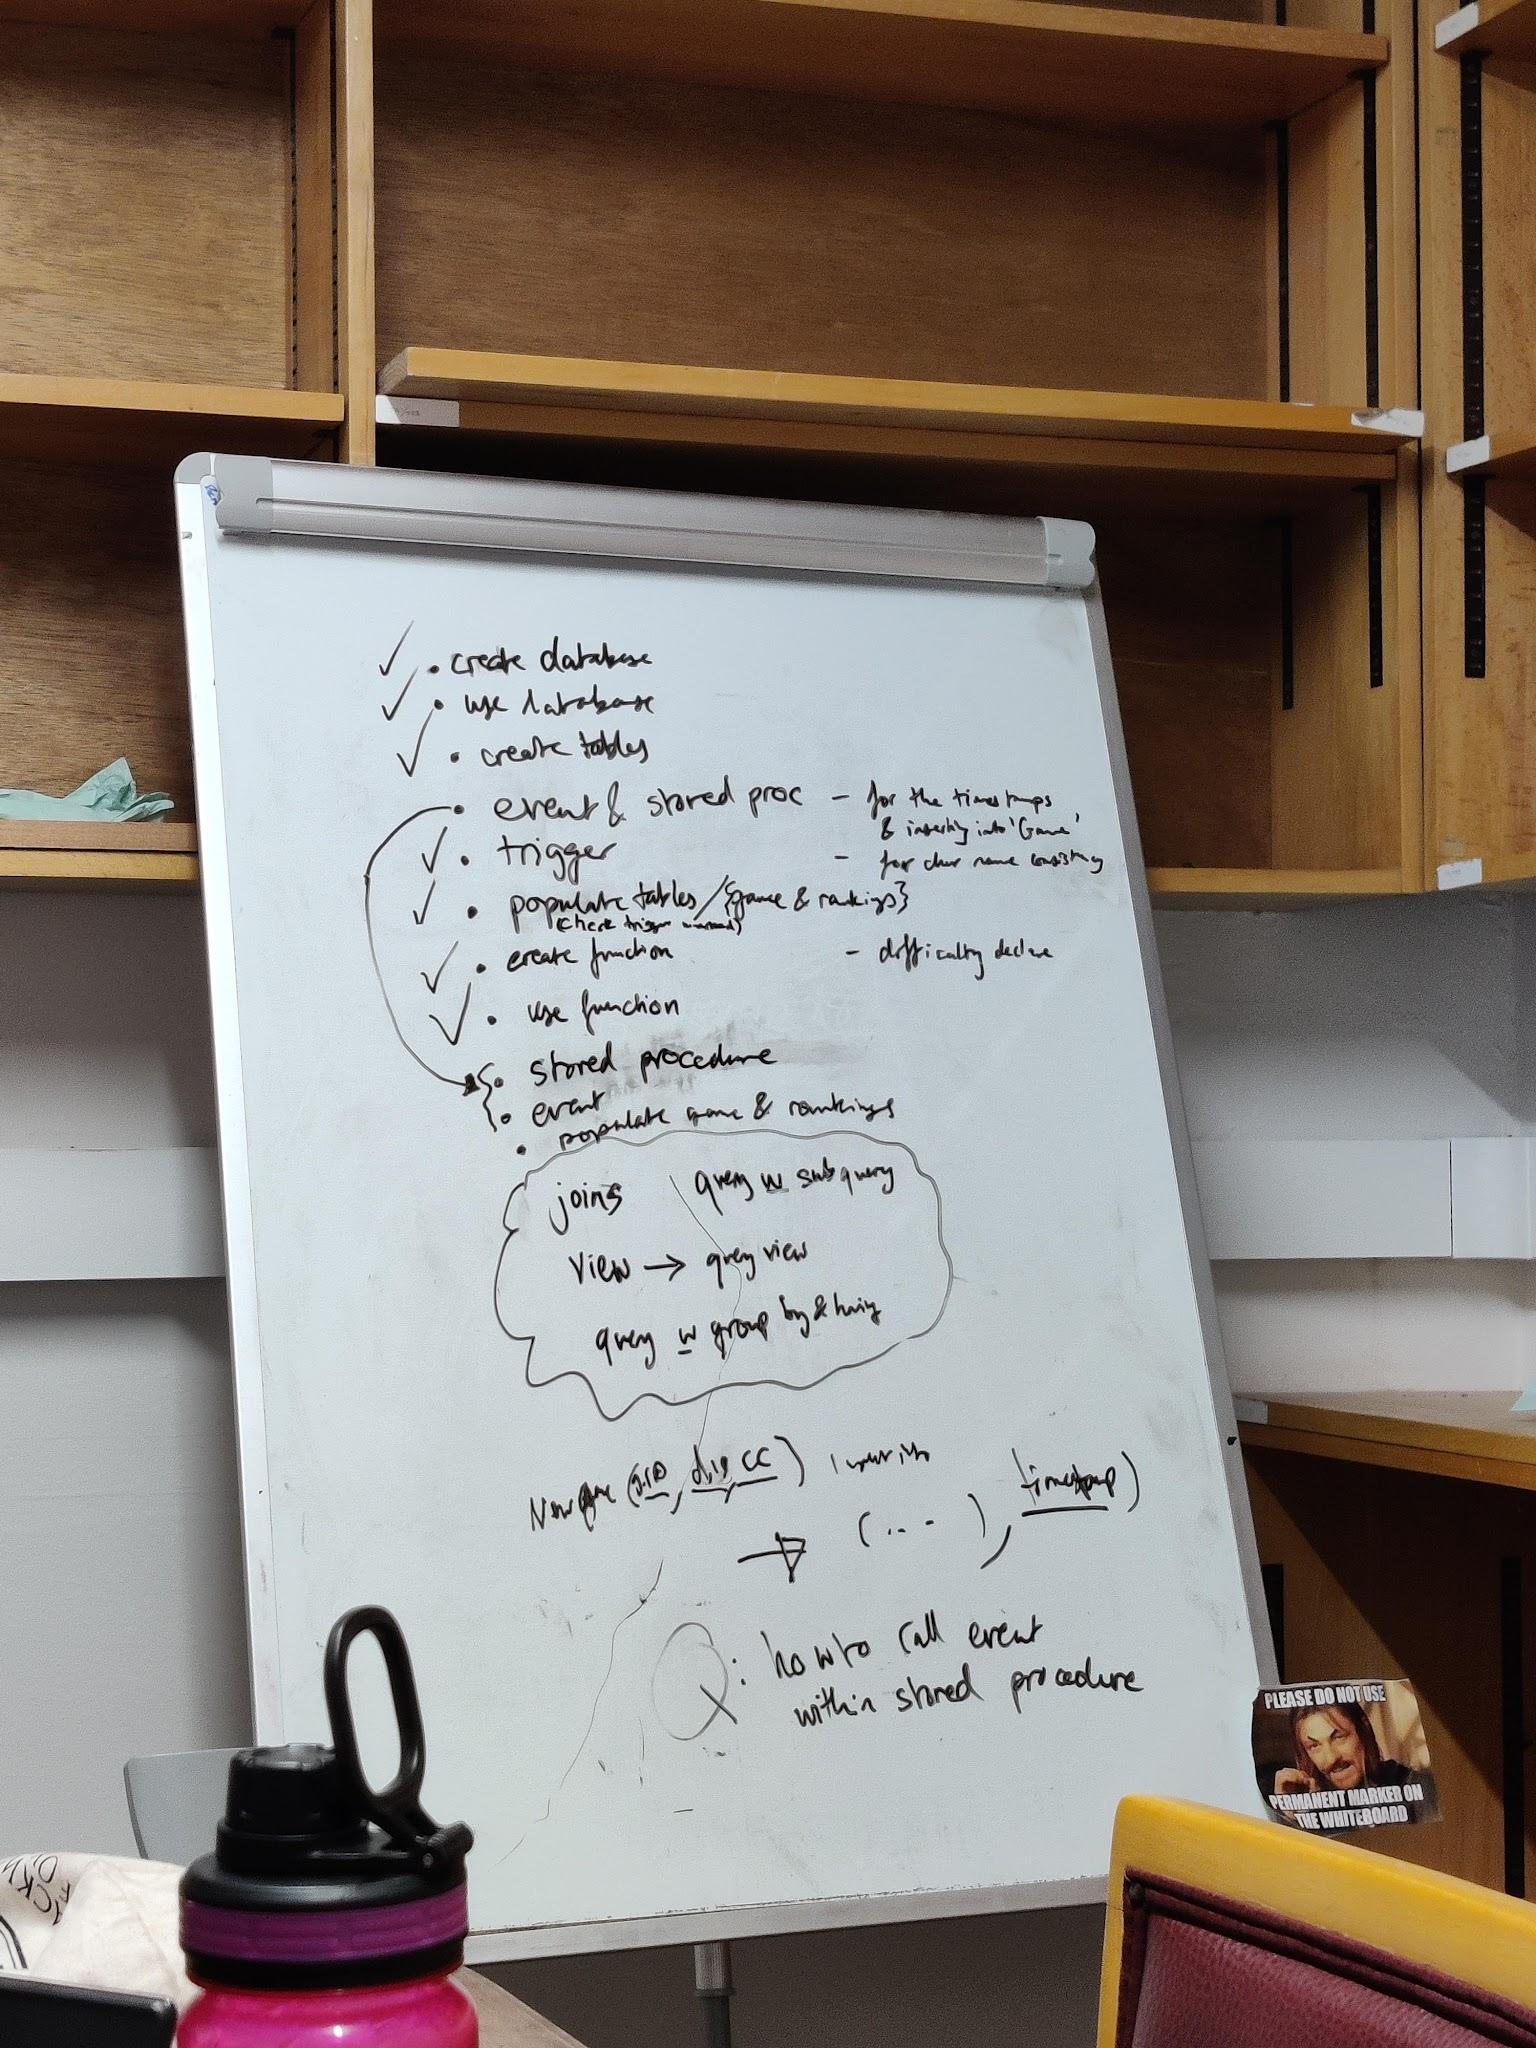 ✓ • create database
✓ • use database
✓ • create tables
• event & stored proc - for the timestamps
& inserting into 'Game'
✓ • trigger - for char name consistency
✓ • populate tables / {game & rankings}
(check trigger
✓ • create function - difficulty declare
✓ • use function
• stored procedure
• event
• populate game & rankings
joins query w subquery
view → query view
query w group by & having
CC)
(... ), timestamp)
Q: how to call event
within stored procedure
PLEASE DO NOT USE
PERMANENT MARKER ON
THE WHITEBOARD